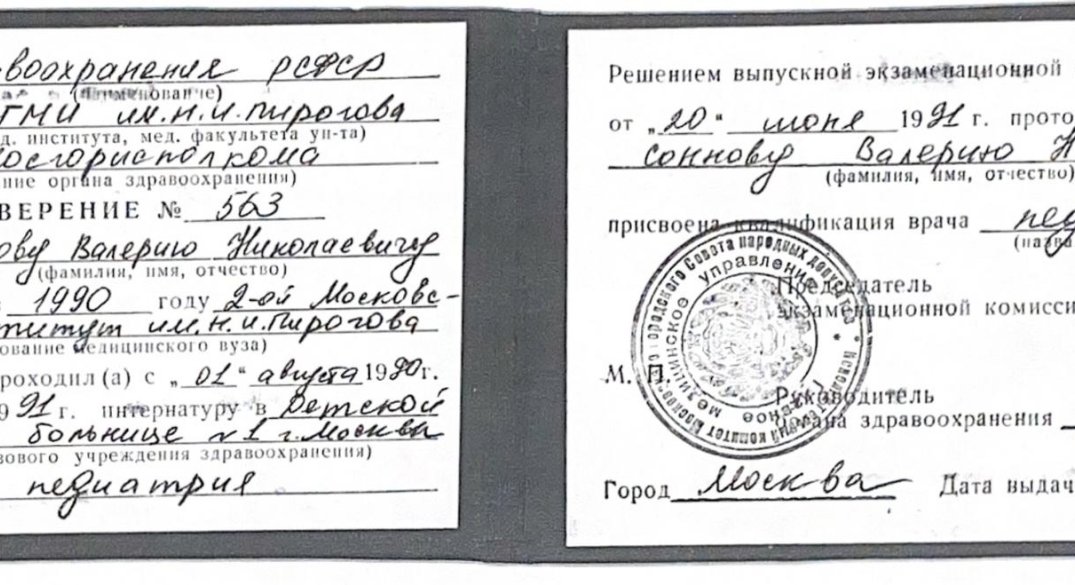 воохранения РСФСР
(наименование)
ГМИ им.Н.И.Пирогова
д. института, мед. факультета ун-та)
осгорисполкома
ние органа здравоохранения)
ВЕРЕНИЕ № 563
ову Валерию Николаевичу
(фамилия, имя, отчество)
1990 году 2-ой Московс-
титут им.Н.И.Пирогова
ование медицинского вуза)
роходил (а) с „01“ августа 1990г.
9 91 г. интернатуру в Детской
больнице №1 г.Москвы
зового учреждения здравоохранения)
педиатрия
Решением выпускной экзаменационной
от „20“ июня 1991 г. прото
Соннову Валерию Н
(фамилия, имя, отчество)
присвоена квалификация врача пед
(назва
Председатель
экзаменационной комисси
М. П.
Руководитель
органа здравоохранения
Город Москва Дата выдач
Главное медицинское управление
Исполнительный комитет Московского городского Совета народных депутатов